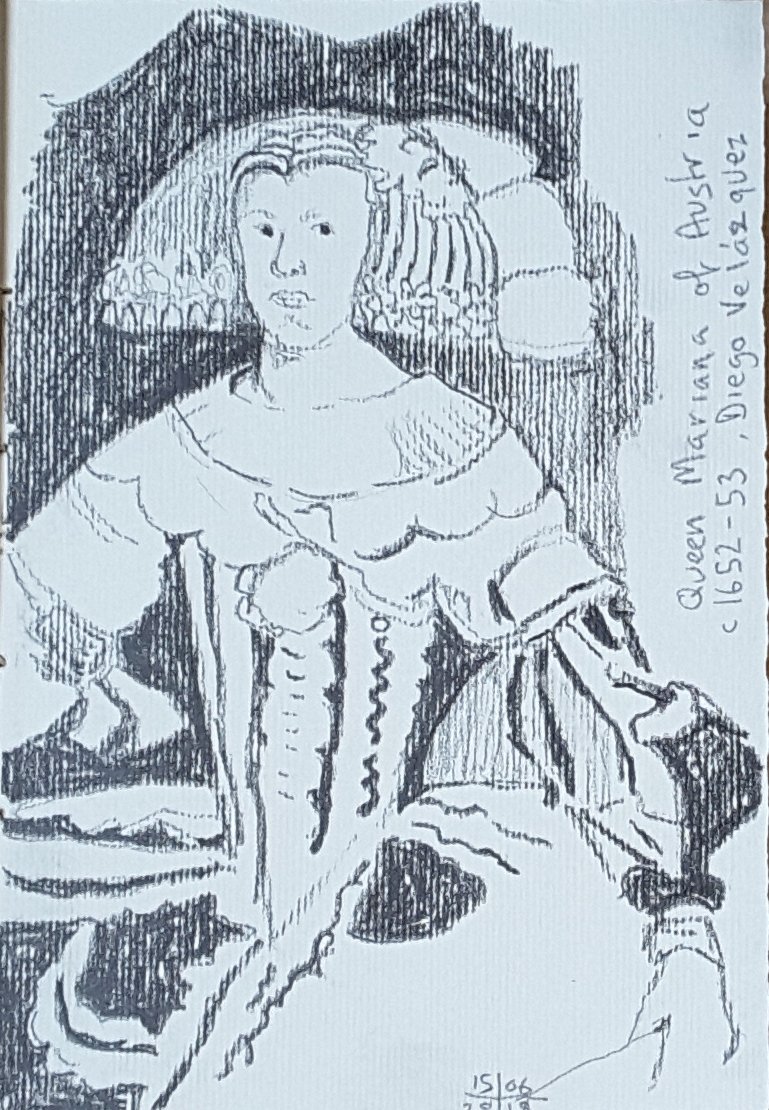 Queen Mariana of Austria
c1652-53, Diego Velázquez
15|06
2018